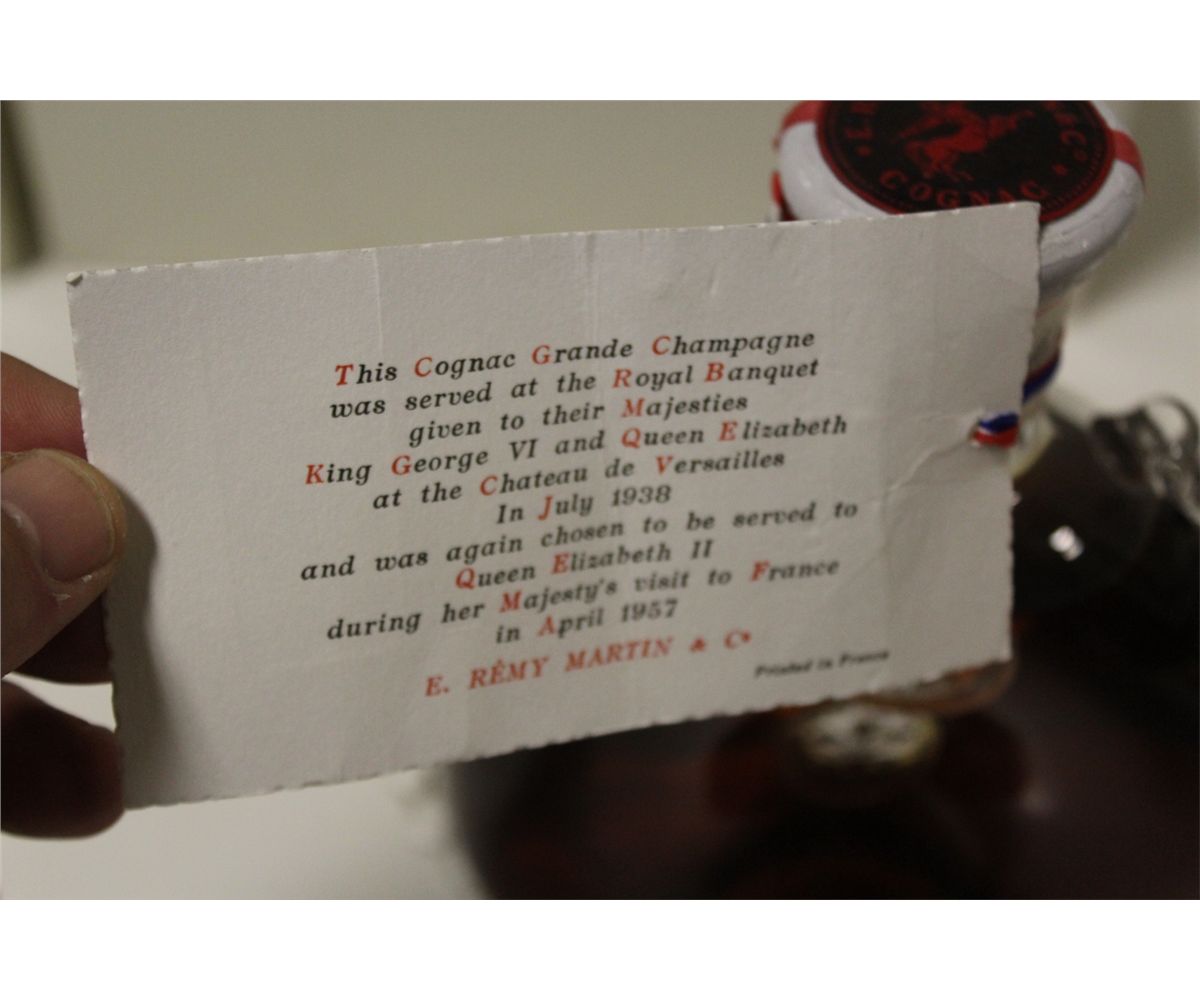 COGNAC
This Cognac Grande Champagne
was served at the Royal Banquet
given to their Majesties
King George VI and Queen Elizabeth
at the Chateau de Versailles
In July 1938
and was again chosen to be served to
Queen Elizabeth II
during her Majesty's visit to France
in April 1957
E. RÉMY MARTIN & Cº
Printed in France